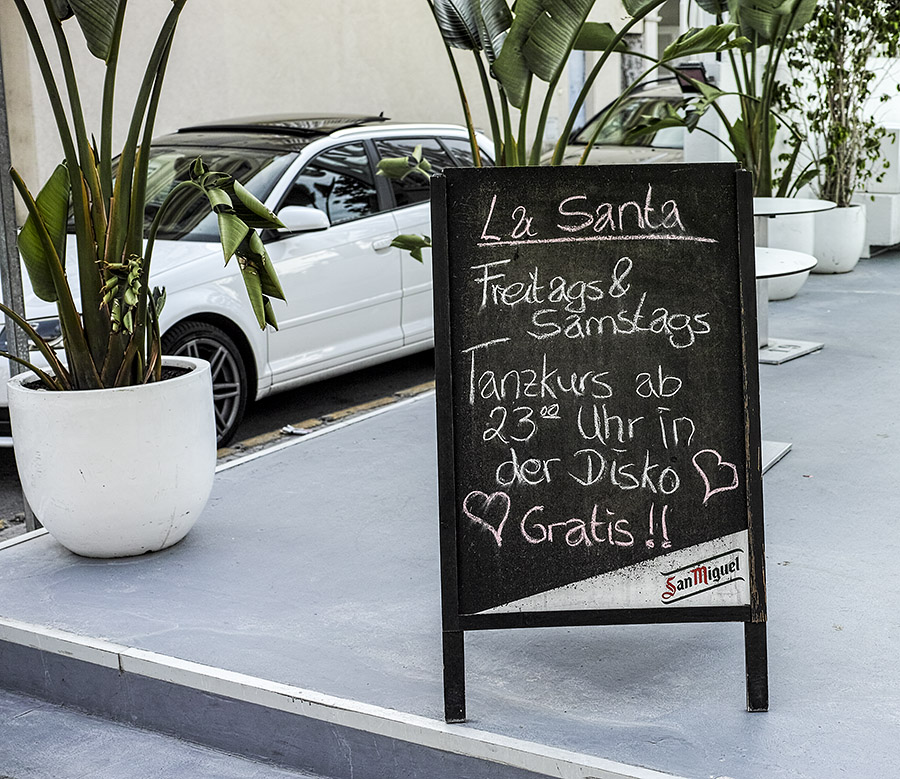 La Santa
Freitags &
Samstags
Tanzkurs ab
23⁰⁰ Uhr in
der Disko
Gratis !!
San Miguel